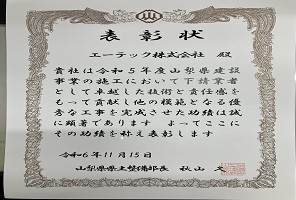 表彰状
エーテック株式会社 殿
貴社は令和5年度山梨県建設
事業の施工において下請業者
として卓越した技術と責任感を
もって貢献し他の模範となる優
秀な工事を完成させた功績は誠
に顕著であります よってここに
その功績を称え表彰します
令和6年11月15日
山梨県県土整備部長 秋山 久